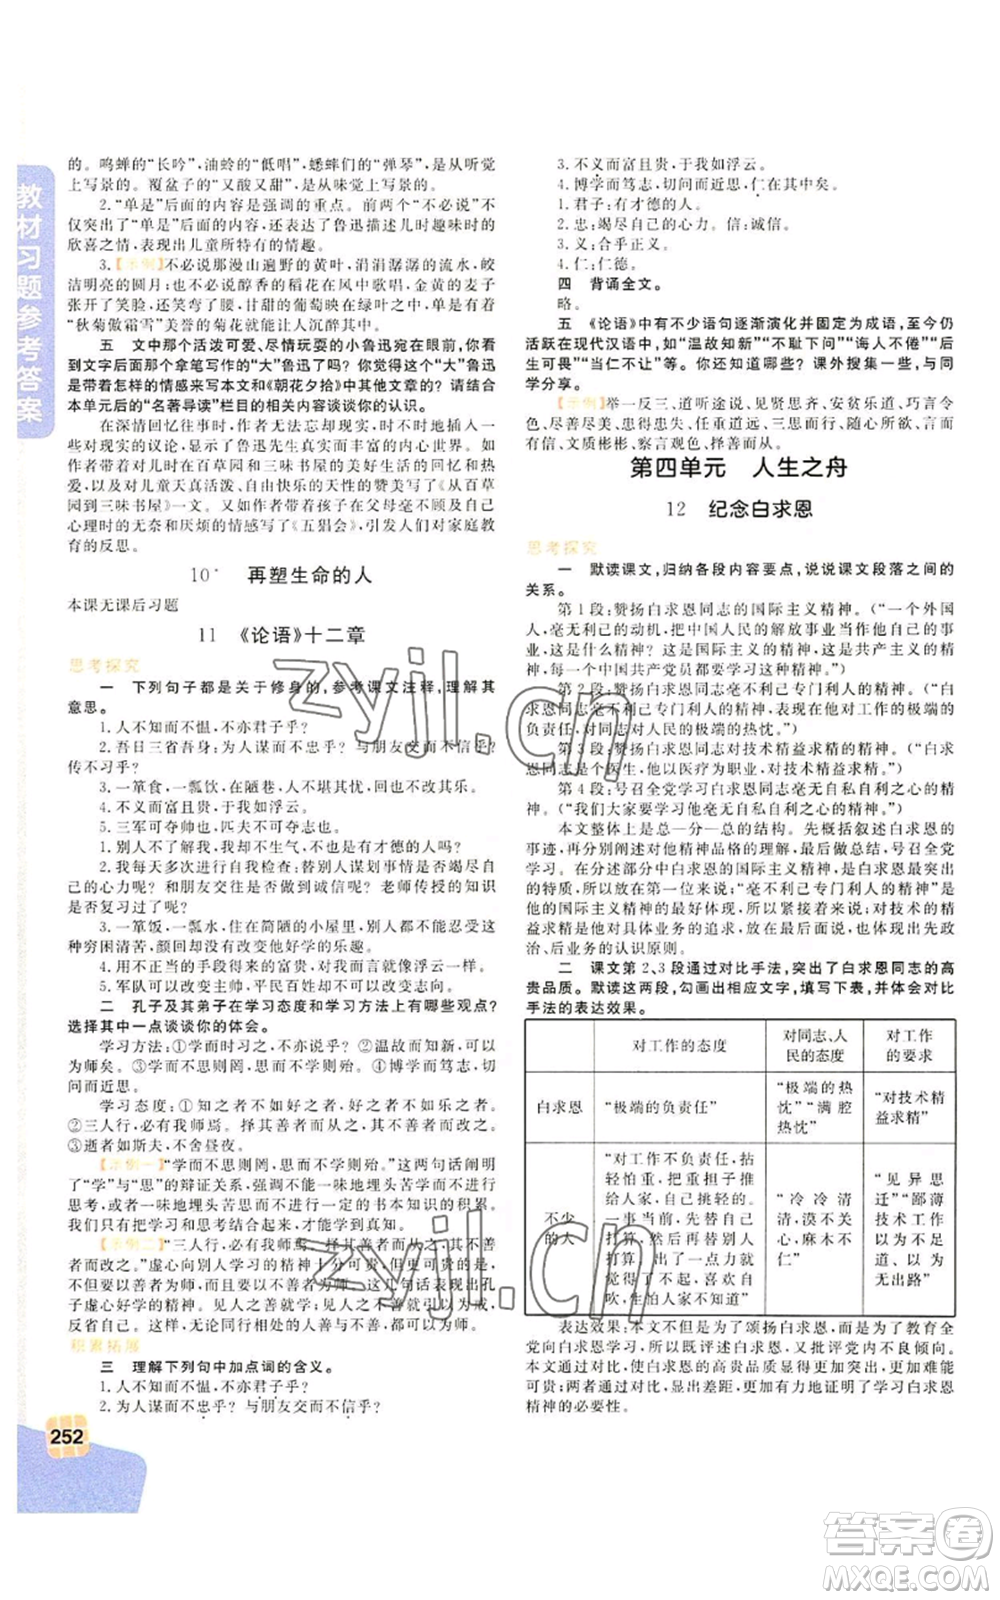 教材习题参考答案
的。鸣蝉的“长吟”,油蛉的“低唱”,蟋蟀们的“弹琴”,是从听觉
上写景的。覆盆子的“又酸又甜”,是从味觉上写景的。
2.“单是”后面的内容是强调的重点。前两个“不必说”不
仅没有冲淡“单是”后面的内容,反而突出了鲁迅儿时趣味和
欣喜之情,表现出儿童所特有的情趣。
3.【示例】不必说那漫山遍野的黄叶,涓涓潺潺的流水,皎
洁明亮的圆月;也不必说醇香的稻花在风中欢唱,金黄的麦子
张开了笑脸,还笑弯了腰,甘甜的葡萄映在绿叶之间,单是
“秋菊傲霜雪”美誉的菊花就能让人沉醉其中。
五 文中那个活泼可爱、尽情玩耍的小鲁迅宛在眼前,你看
到文字后面那个拿笔写作的“大”鲁迅了吗?这个“大”鲁迅
是带着怎样的情感来写本文和《朝花夕拾》其他文章的?请结合
本单元后的“名著导读”栏目的相关内容谈谈你的认识。
在深情回忆往事时,作者无法忘却现实,时时插入一些对
现实的议论,显示了鲁迅先生真实而丰富的内心世界。如
作者带着对儿时在百草园和三味书屋的美好生活的回忆和热
爱,对儿童天真活泼、自由快乐的天性的赞美写了《从百草园
到三味书屋》一文。又如作者带着孩子在父母毫不顾及儿童
心理时的无奈和厌烦的情感写了《五猖会》,引发人们对家庭教
育的反思。
10* 再塑生命的人
本课无课后习题
11 《论语》十二章
思考探究
一 下列句子都是关于修身的,参考课文注释,理解其
意思。
1.人不知而不愠,不亦君子乎?
2.吾日三省吾身:为人谋而不忠乎?与朋友交而不信乎?
传不习乎?
3.一箪食,一瓢饮,在陋巷,人不堪其忧,回也不改其乐。
4.不义而富且贵,于我如浮云。
5.三军可夺帅也,匹夫不可夺志也。
1.别人不了解我,我却不生气,不也是有才德的人吗?
2.我每天多次进行自我检查:替别人谋划事情是否竭尽自
己的心力呢?和朋友交往是否做到诚信了呢?老师传授的知识
是否复习过了呢?
3.一箪饭,一瓢水,住在简陋的小屋里,别人都忍受不了这
种穷困清苦,颜回却没有改变他爱好学习的乐趣。
4.用不正当的手段得来的富贵,对于我来讲就像是天上的浮云一样。
5.军队可以改变主帅,平民百姓却不可以改变志向。
二 孔子及其弟子在学习态度和学习方法上有哪些观点?
选择其中一点谈谈你的体会。
学习方法:①学而时习之,不亦说乎?②温故而知新,可以
为师矣。③学而不思则罔,思而不学则殆。④博学而笃志,切
问而近思。
学习态度:①知之者不如好之者,好之者不如乐之者。
②三人行,必有我师焉。择其善者而从之,其不善者而改之。
③逝者如斯夫,不舍昼夜。
【示例一】“学而不思则罔,思而不学则殆。”这两句话阐明
了“学”与“思”的辩证关系。一味地埋头读书而不思考,或者一味地埋头苦思而不进行一定的书本知识的积累。
我们只有把学习和思考结合起来,才能学到真知。
【示例二】“三人行,必有我师焉。择其善者而从之,其不善者
而改之。”虚心向别人学习的精神十分可贵,但更可贵的是,不
仅要以善者为师,而且以不善者为师,这几句话体现了孔
子虚心好学的精神。见人之善就学,见人之不善就引以为戒,
反省自己。这样,无论同行相处的人善与不善,都可以为师。
积累拓展
三 理解下列句中加点词的含义。
1.人不知而不愠,不亦君子乎?
2.为人谋而不忠乎?与朋友交而不信乎?
252
3.不义而富且贵,于我如浮云。
4.博学而笃志,切问而近思,仁在其中矣。
1.君子:有才德的人。
2.忠:竭尽自己的心力。信:诚信。
3.义:合乎正义。
4.仁:仁德。
四 背诵全文。
略。
五 《论语》中有不少语句逐渐演化并固定为成语,至今仍
活跃在现代汉语中,如“温故知新”“不耻下问”“诲人不倦”“后
生可畏”“当仁不让”等。你还知道哪些?课外搜集一些,与同
学分享。
【示例】举一反三、道听途说、见贤思齐、安贫乐道、巧言令
色、尽善尽美、患得患失、任重道远、既往不咎、有教无类、言而
有信、文质彬彬、察言观色、择善而从。
第四单元 人生之舟
12 纪念白求恩
思考探究
一 默读课文,归纳各段内容要点,说说课文段落之间的
关系。
第1段:赞扬白求恩同志的国际主义精神。(“一个外国
人,毫无利己的动机,把中国人民的解放事业当作他自己的事
业,这是什么精神?这是国际主义的精神,这是共产主义的精
神,每一个中国共产党员都要学习这种精神。”)
第2段:赞扬白求恩同志毫不利己专门利人的精神。(“白
求恩同志毫不利己专门利人的精神,表现在他对工作的极端的
负责任,对同志对人民的极端的热忱。”)
第3段:赞扬白求恩同志对技术精益求精的精神。(“白求
恩同志是个医生,他以医疗为职业,对技术精益求精”)
第4段:号召全党学习白求恩同志毫无自私自利之心的精
神。(“我们大家要学习他毫无自私自利之心的精神。”)
本文整体上是总—分—总的结构。先概括叙述白求恩的
事迹,再分别阐述对他精神品格的理解,最后做总结,号召全党
学习。在分述部分中白求恩的国际主义精神,是三种精神中最
重要的,所以放在第一位来写;“毫不利己专门利人的精神”是
他的国际主义精神的具体表现,比较重要,所以其次;对技术的
精益求精是对具体业务的追求,故放在后面,这也体现出先政
治、后业务的认识原则。
二 课文第2、3段通过对比手法,突出了白求恩同志的高
贵品质。默读这两段,勾画出相应文字,填写下表,并体会对比
手法的表达效果。
对工作的态度 对同志、人民的态度 对工作的要求
白求恩 “极端的负责任” “极端的热忱”“满腔热忱” “对技术精益求精”
不少的人 “对工作不负责任,拈轻怕重,把重担子推给人家,自己挑轻的。一事当前,先替自己打算,然后再替别人打算。出了一点力就觉得了不起,喜欢自吹,生怕人家不知道” “冷冷清清,漠不关心,麻木不仁” “见异思迁”“鄙薄技术工作以为不足道、以为无出路”
表达效果:本文不仅是为了颂扬白求恩,也是为了教育全
党向白求恩学习,所以既评述白求恩,又批评党内不良倾向。
本文进行对比,使白求恩的高贵品质更加突出,更加难能
可贵;两者对比,显出差距,更有力地证明了学习白求恩
精神的必要性。
zyjl.cn
zyjl.cn
答案圈
MXQE.COM